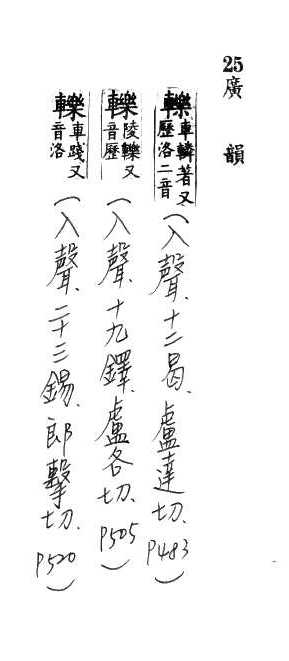 25 廣韻
轢車轔著又歷洛二音(入聲、十二曷、盧達切、P483)
轢陵轢又音歷(入聲、十九鐸、盧各切、P505)
轢車踐又音洛(入聲、二十三錫、郎擊切、P520)